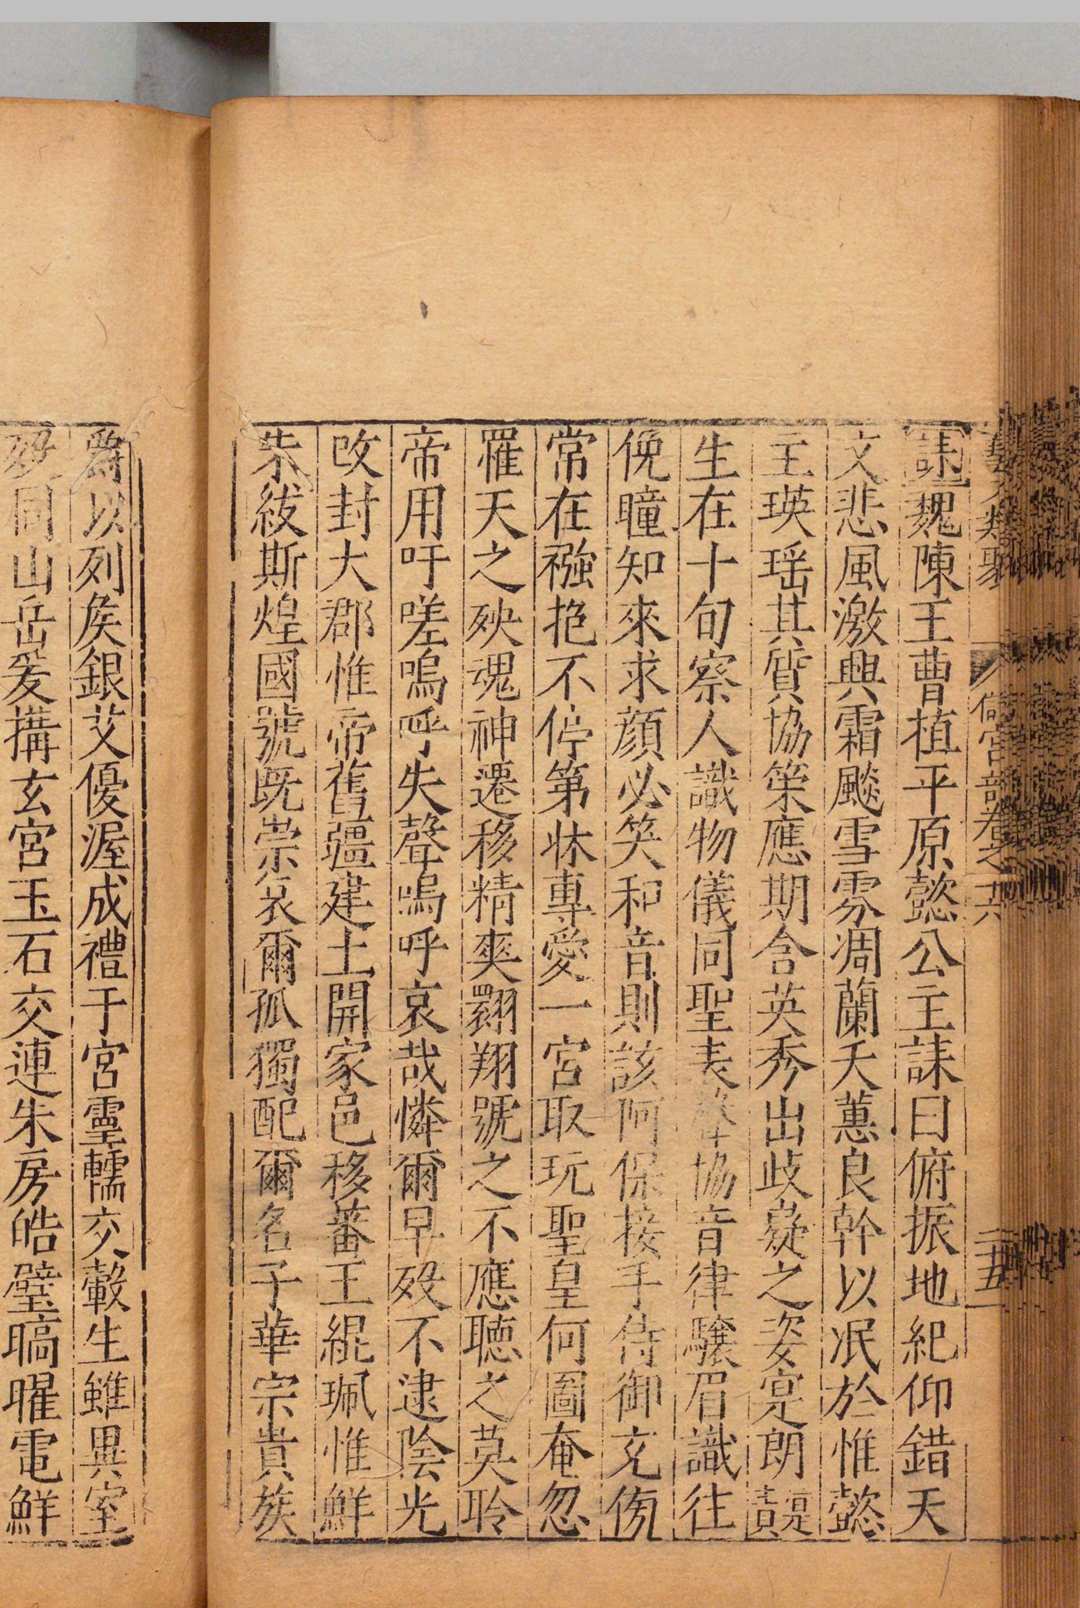 誄魏陳王曹植平原懿公主誄曰俯振地紀仰錯天
文悲風激興霜飈雪雰凋蘭夭蕙良幹以泯於惟懿
主瑛瑶其質協策應期含英秀出歧嶷之姿寔朗寔貴
生在十旬察人識物儀同聖表協音律驤眉識往
俛瞳知來求顔必笑和音則該阿保接手侍御充傍
常在襁抱不停第牀專愛一宮取玩聖皇何圖奄忽
罹天之殃魂神遷移精爽翱翔號之不應聽之莫聆
帝用吁嗟嗚呼失聲嗚呼哀哉憐爾早殁不逮陰光
改封大郡惟帝舊疆建土開家邑移蕃王緄珮惟鮮
朱紱斯煌國號既崇哀爾孤獨配爾名子華宗貴族
爵以列侯銀艾優渥成禮于宮靈轜交轂生雖異室
殁同山岳爰搆玄宮玉石交連朱房皓璧暠曜電鮮
類聚 卷之十六
三五